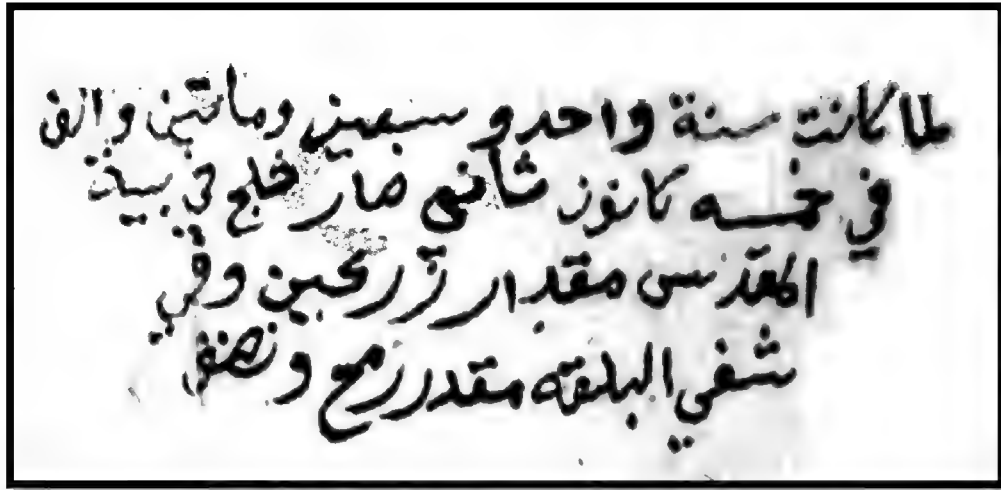 طا كانت سنة واحد و سبعين وماتين والف
في خمسه كانون ثاني صار خلج في بيت
المقدس مقدار وفي
شفي البلقه مقدر رمح ونصف